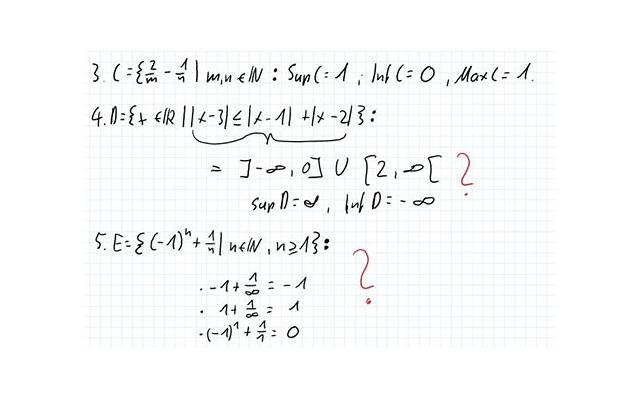 3. C={2/m - 1/n | m,n ∈ ℕ : Sup C = 1 ; Inf C = 0 , Max C = 1.
4. D={x ∈ ℝ | |x-3| ≤ |x-1| + |x-2|}:
= ]-∞, 0] ∪ [2, ∞[ ?
sup D = ∞, Inf D = -∞
5. E={(-1)^n + 1/n | n ∈ ℕ, n ≥ 1}: ?
· -1 + 1/∞ = -1
· 1 + 1/∞ = 1
· (-1)^1 + 1/1 = 0